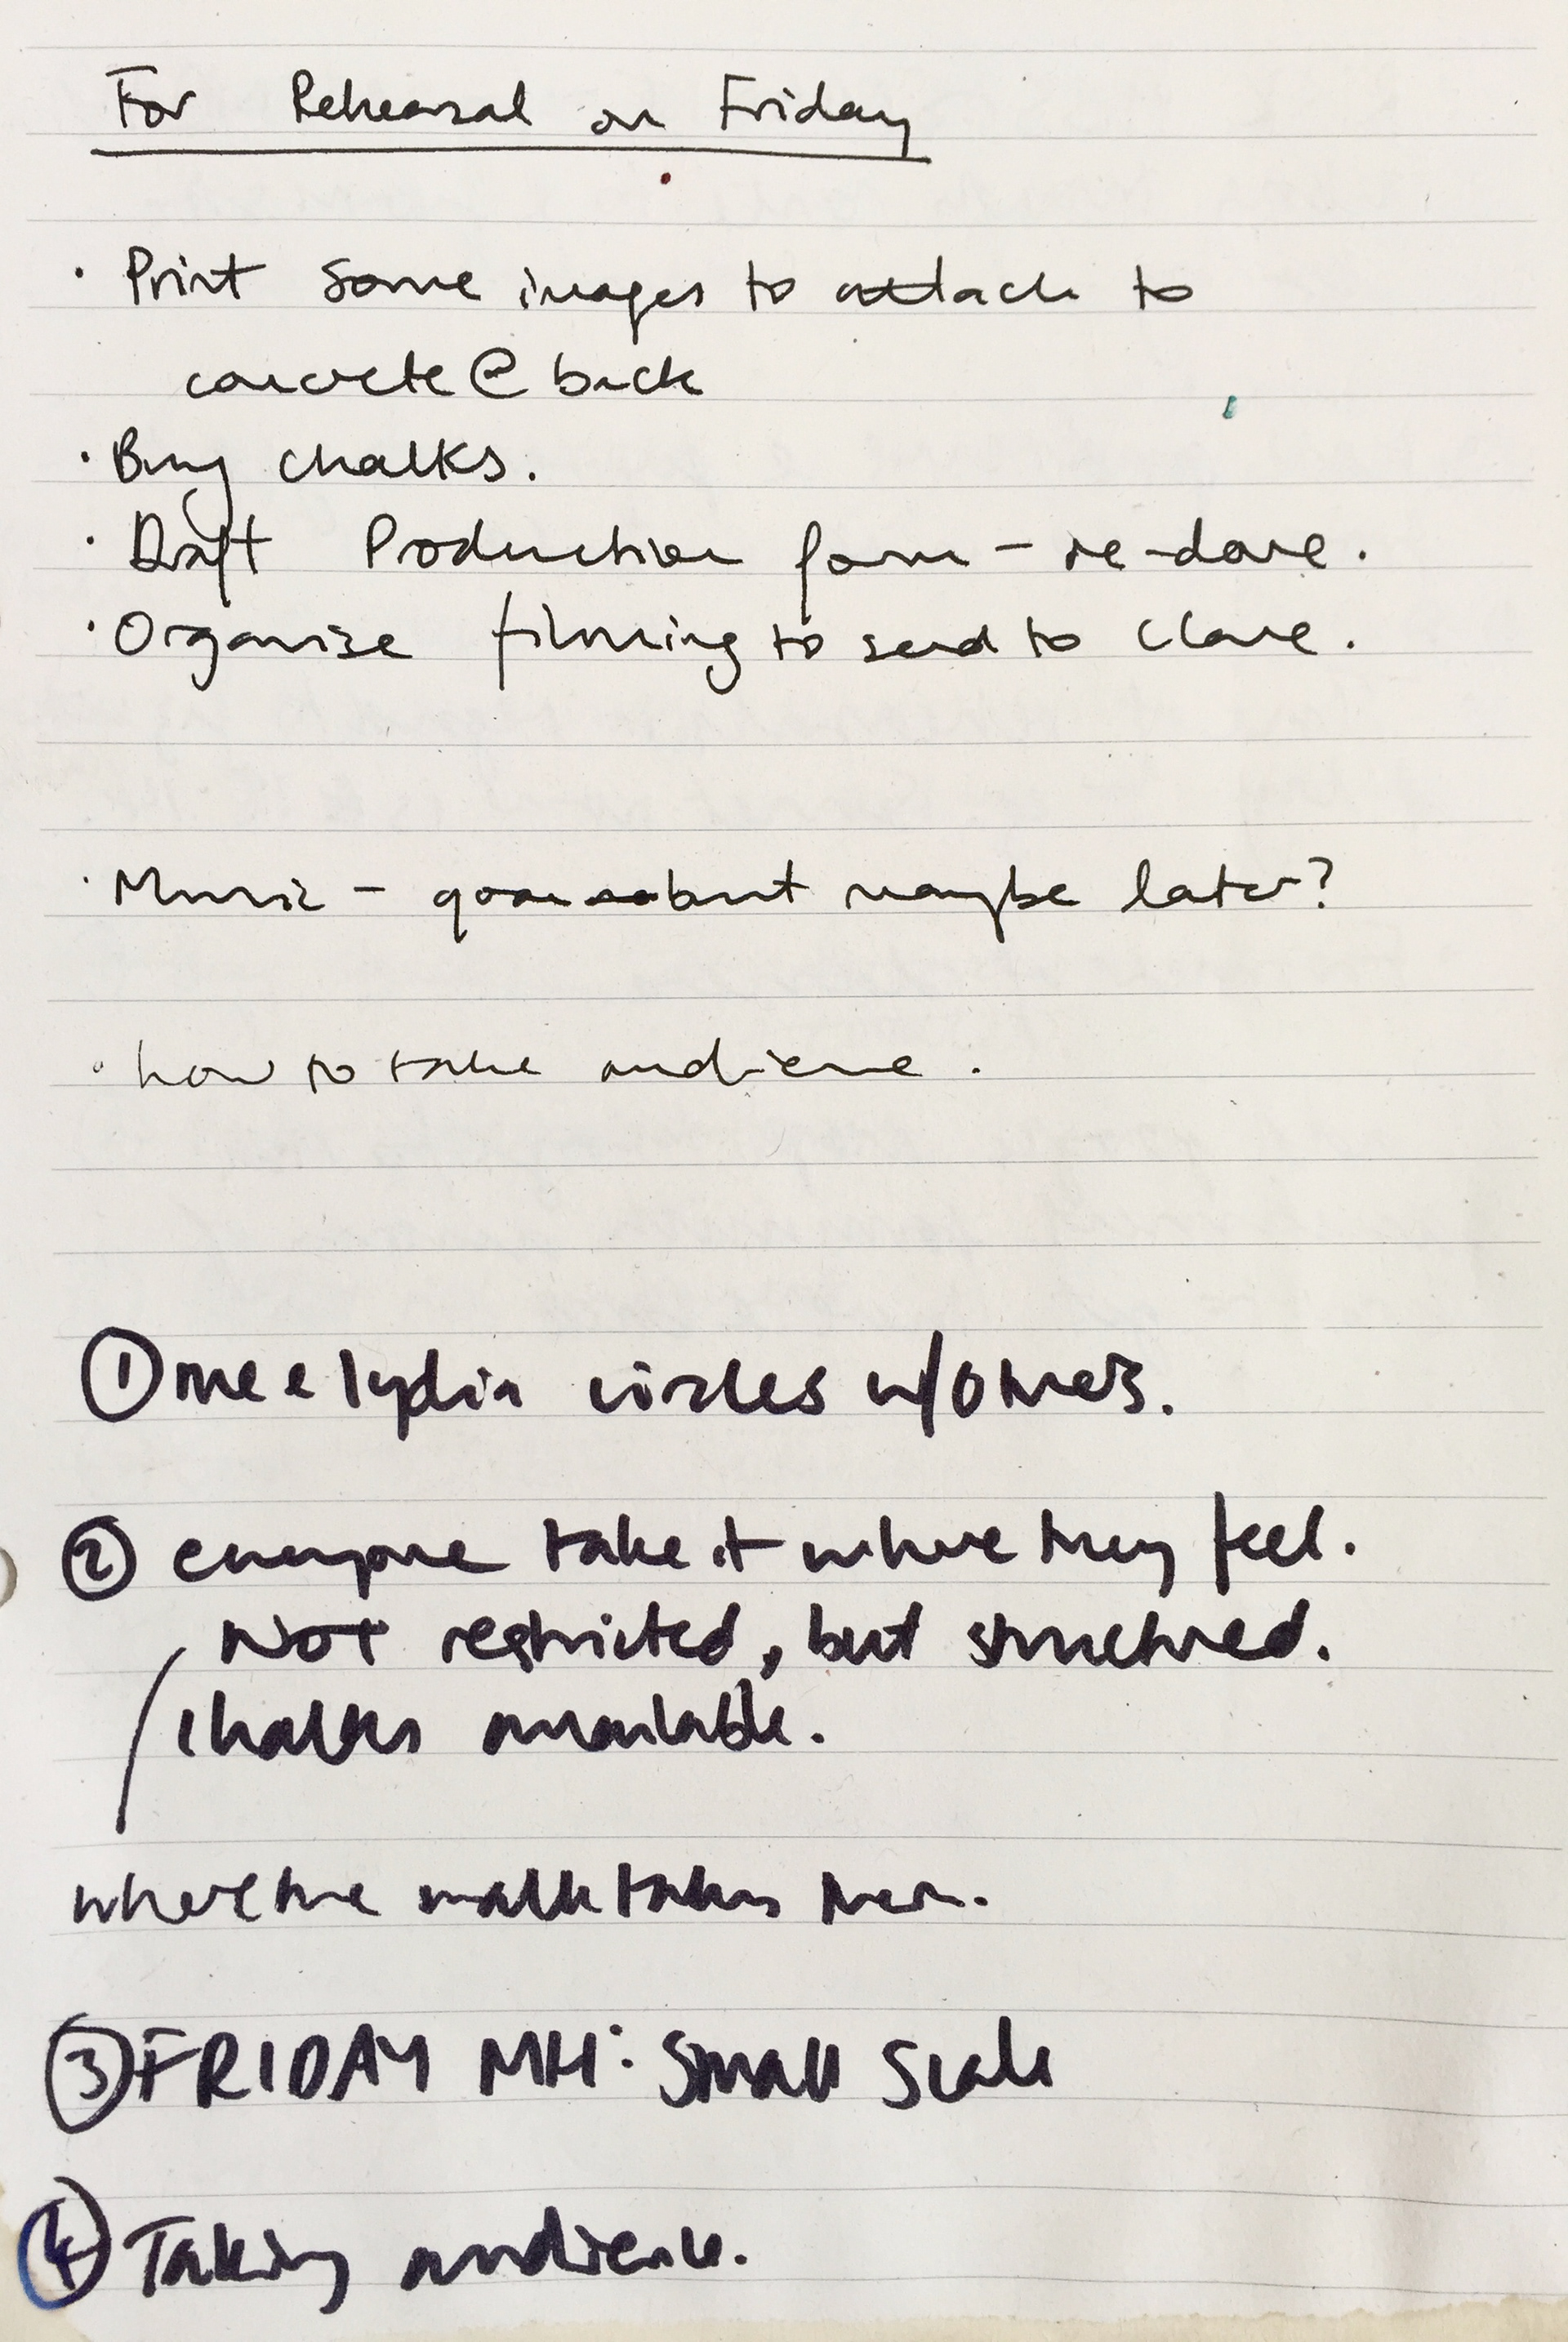 For Rehearsal on Friday
· Print some images to attach to
concrete @ back
· Buy chalks.
· Draft Production form – re-done.
· Organise filming to send to Clare.
· Music – but maybe later?
· how to take audience.
① me & lydia circles w/others.
② everyone take it where they feel.
Not restricted, but structured.
chalks available.
where the walk takes them.
③ FRIDAY MH: Small Scale
④ Taking audience.